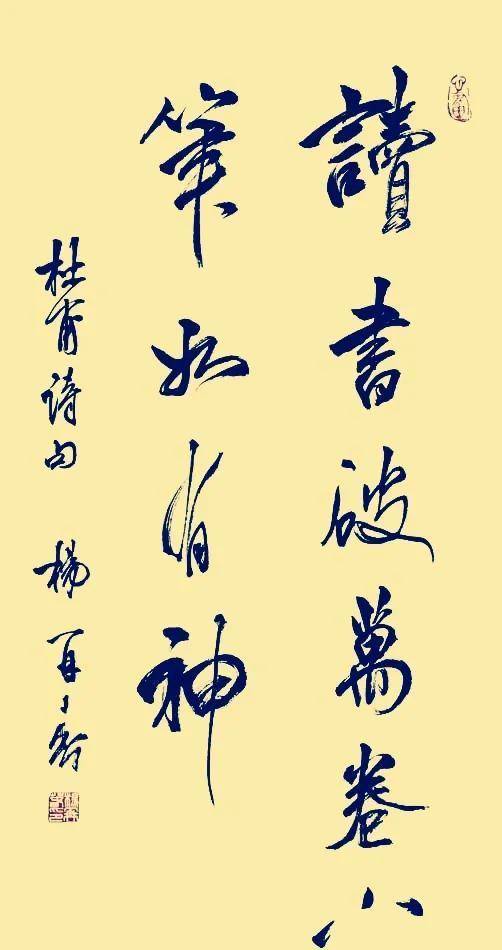 讀書破萬卷下
筆如有神
杜甫詩句 楊再春